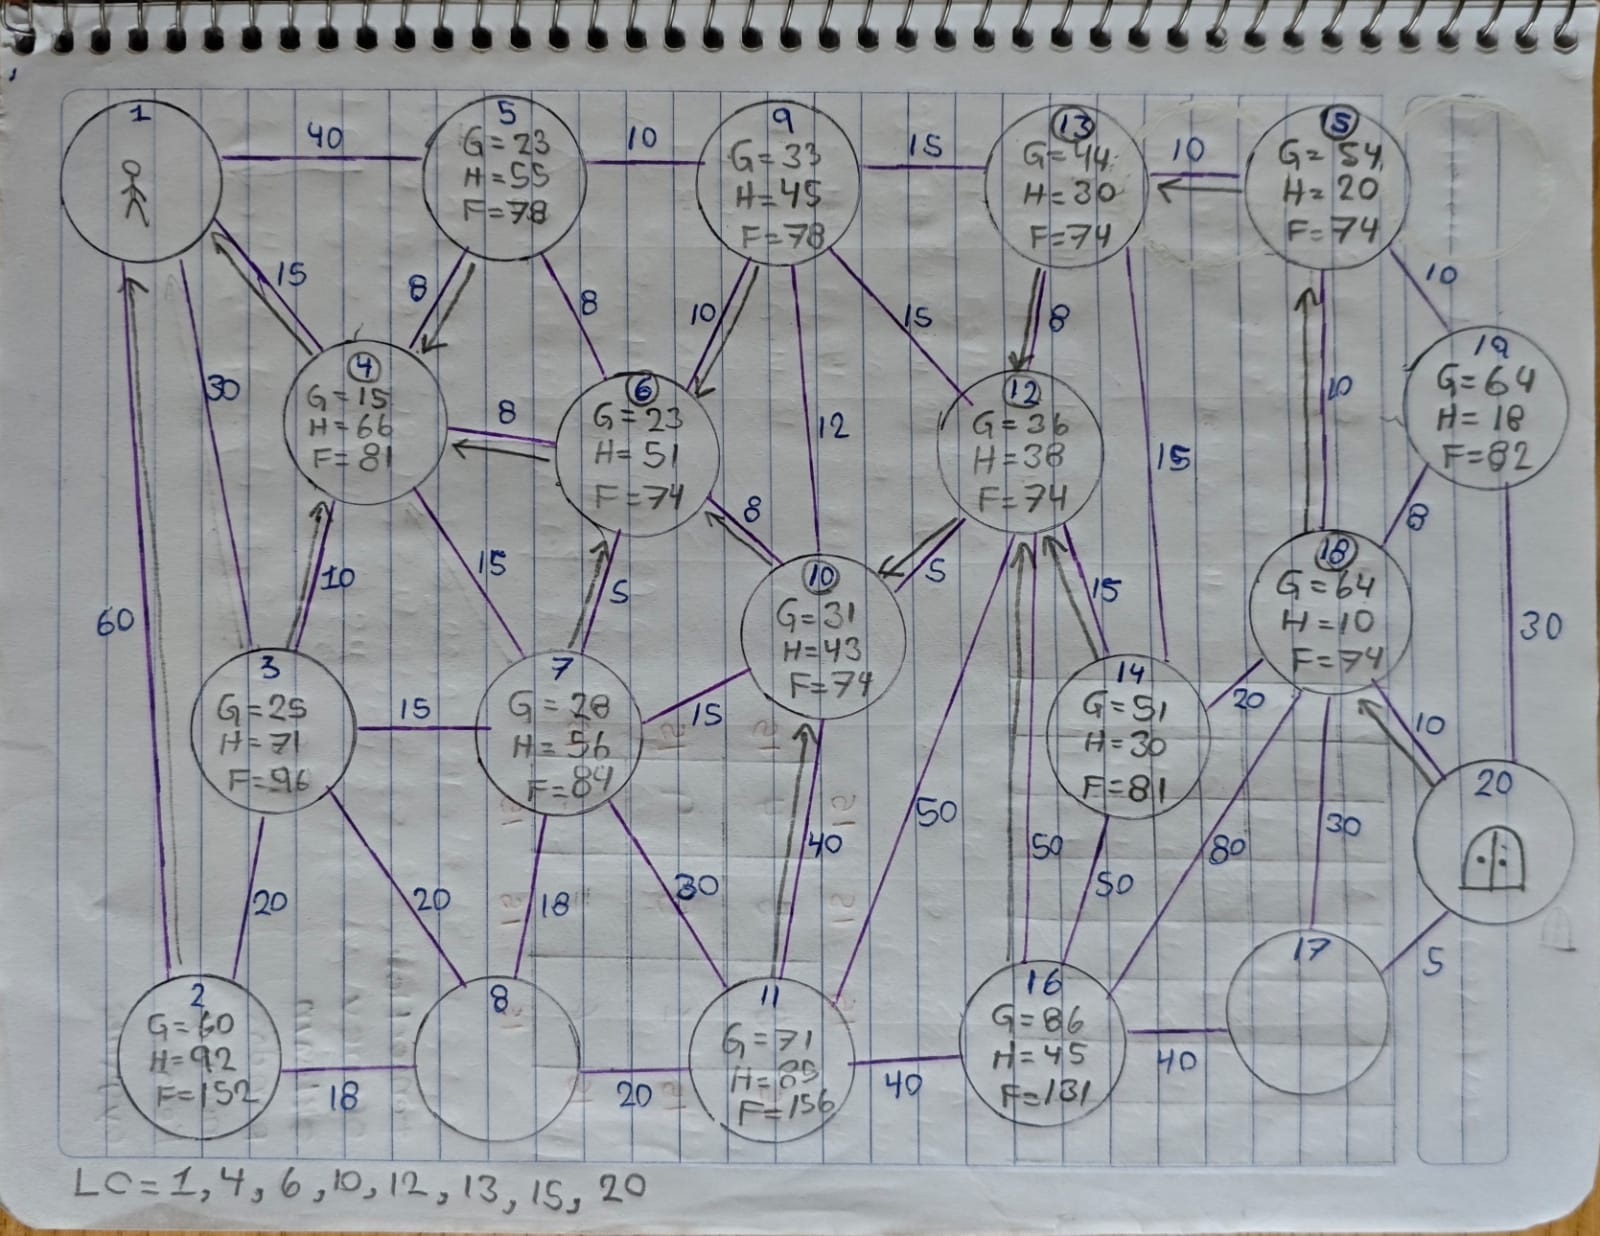 1
40
5
G=23
H=55
F=78
10
9
G=33
H=45
F=78
15
13
G=44
H=30
F=74
10
15
G=54
H=20
F=74
10
15
8
8
10
15
8
30
4
G=15
H=66
F=81
8
6
G=23
H=51
F=74
12
12
G=36
H=38
F=74
15
10
19
G=64
H=18
F=82
60
10
15
5
8
10
G=31
H=43
F=74
5
15
8
18
G=64
H=10
F=74
30
3
G=25
H=71
F=96
15
7
G=28
H=56
F=84
15
14
G=51
H=30
F=81
20
10
20
20
20
18
30
40
50
50
50
80
30
5
2
G=60
H=92
F=152
18
8
20
11
G=71
F=156
40
16
G=86
H=45
F=131
40
17
LC=1,4,6,10,12,13,15,20